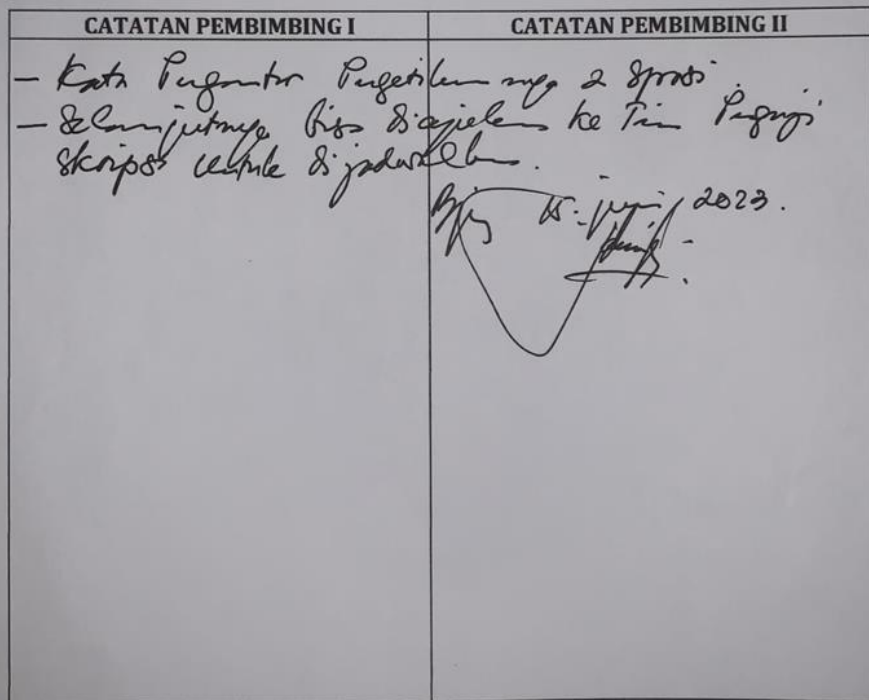 CATATAN PEMBIMBING I
CATATAN PEMBIMBING II
– Kata Pengantar Pengetikannya 2 Spasi.
– Selanjutnya bisa diajukan ke Tim Penguji
skripsi untuk dijadwalkan.
15 - juni 2023.